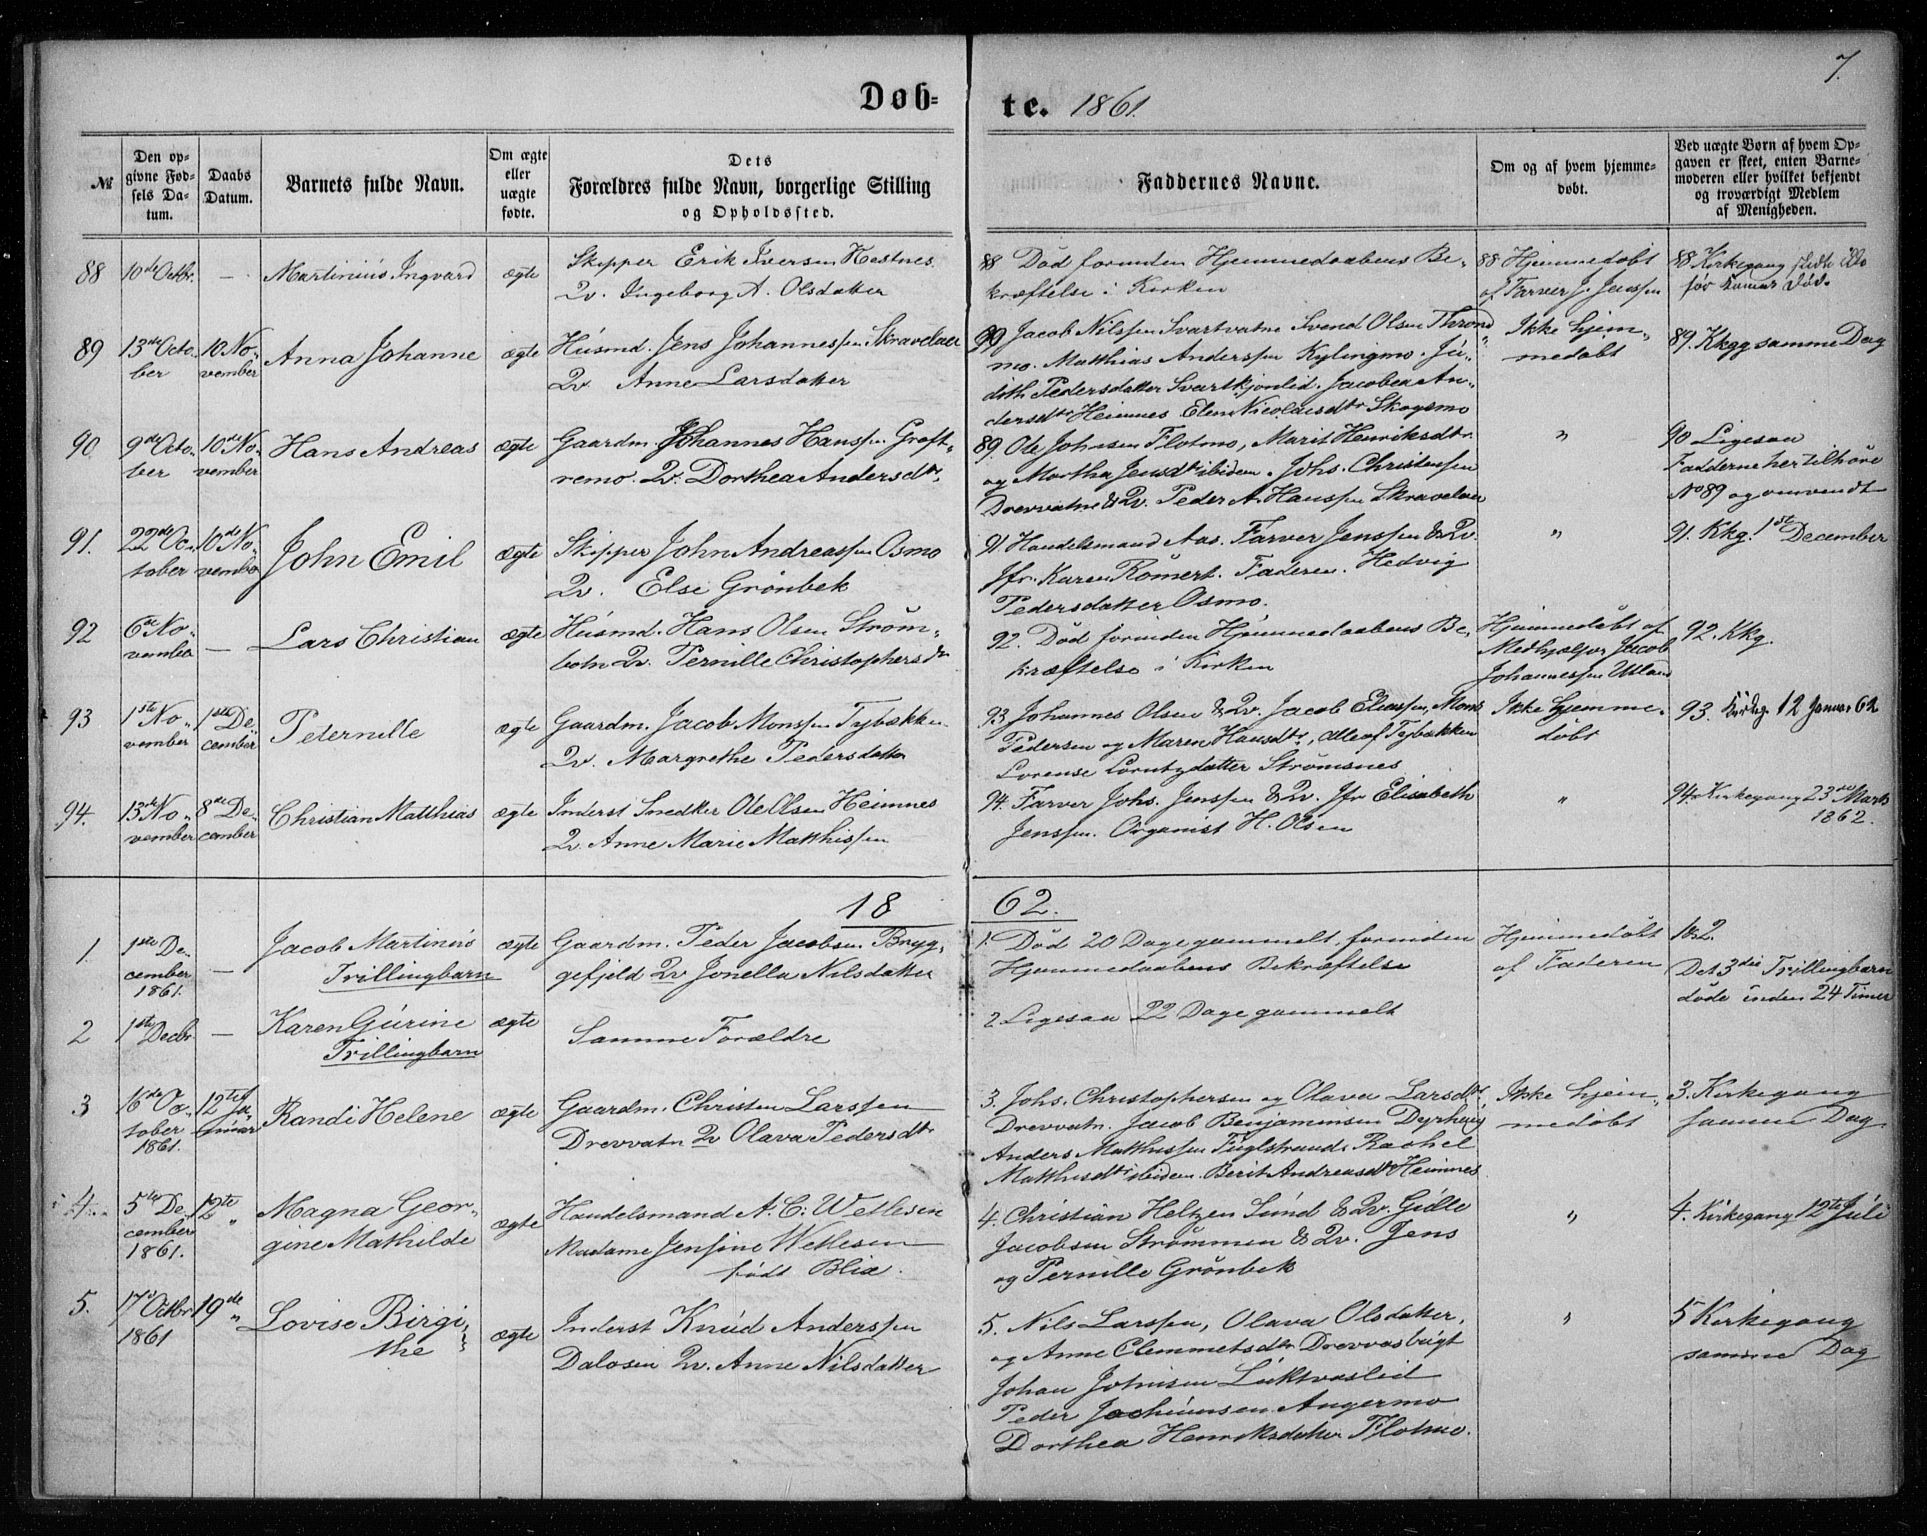 7.
Døb-
te. 1861.
№
Den op-
givne Fød-
sels Da-
tum.
Daabs
Datum.
Barnets fulde Navn.
Om ægte
eller
uægte
fødte.
Dets
Forældres fulde Navn, borgerlige Stilling
og Opholdssted.
Faddernes Navne.
Om og af hvem hjemme-
døbt.
Ved uægte Børn af hvem Op-
gaven er skeet, enten Barne-
moderen eller hvilket bekjendt
og troværdigt Medlem
af Menigheden.
88
10de Octbr.
—
Martinius Ingvard
ægte
Skipper Erik Iversen Hestnes
Qv. Ingeborg A. Olsdatter
88 Død forinden Hjemmedaabens Be-
kræftelse i Kirken
88 Hjemmedøbt
af Farver J. Jenssen
88 Kirkegang
før Død.
89
13de Octo-
ber
10 No-
vember
Anna Johanne
ægte
Husmd. Jens Johannessen Skravelaae
Qv. Anne Larsdatter
90 Jacob Nilssen Svartvatne Svend Olsen Thrond
mo. Matthias Anderssen Kylingmo. Ju-
dith Pedersdatter Svartkjønlid. Jacobea An-
dersdtr Heimnes Elen Nicolaisdtr Skogsmo
Ikke hjem-
medøbt
89. Kkgg samme Dag
90
9de Octo-
ber
10de No-
vember
Hans Andreas
ægte
Gaardm. Johannes Hanssen Grøft-
remo. Qv. Dorthea Andersdtr.
89. Ole Johnsen Flotmo, Marit Henriksdtr.
og Martha Jensdtr ibidem. Johs. Christensen
Drevvatne & Qv. Peder A. Hanssen Skravelaae
"
90 Ligesaa
Fadderne hertil høre
No 89 og omvendt
91.
22de Oc-
tober
10de No-
vember
John Emil
ægte
Skipper John Andreassen Osmo
Qv. Else Grønbek
91 Handelsmand Aas. Farver Jenssen & Qv.
Jfr. Karen Rømert. Faderen. Hedvig
Pedersdatter Osmo.
"
91. Kkg. 1ste December
92
6te No-
vember
—
Lars Christian
ægte
Husmd. Hans Olsen Strøm-
botn Qv. Pernille Christophersdtr
92. Død forinden Hjemmedaabens Be-
kræftelse i Kirken
Hjemmedøbt af
Medhjelper Jacob
Johannessen Utland
92. Kkg.
93
1ste No-
vember
1ste De-
cember
Peternille
ægte
Gaardm. Jacob Monssen Tybækken
Qv. Margrethe Pedersdatter
93 Johannes Olsen & Qv. Jacob Eliassen, Mons
Pedersen og Maren Hansdtr, alle af Tybækken
Lorense Lorntzdatter Strømsnes
Ikke hjemme-
døbt
93. Kirkeg. 12 Januar 62
94.
13de No-
vember
8de De-
cember
Christian Matthias
ægte
Inderst Snedker Ole Olsen Heimnes
Qv. Anne Marie Matthissen
94. Farver Johs. Jenssen & Qv. Jfr Elisabeth
Jenssen. Organist H. Olsen
"
94. Kirkegang 23de Marts
1862.
18
62.
1.
1ste De-
cember
1861.
—
Jacob Martinus
Trillingbarn
ægte
Gaardm. Peder Jacobsen Bryg-
gefjeld Qv Jonella Nilsdatter
1. Død 20 Dage gammelt, forinden
Hjemmedaabens Bekræftelse
Hjemmedøbt
af Faderen
1&2.
Det 3die Trillingbarn
døde inden 24 Timer
2
1ste Decbr
—
Karen Gurine
Trillingbarn
ægte
Samme Forældre
2 Ligesaa 22 Dage gammelt
3
16de Oc-
tober
1861.
12te Ja-
nuar
Randi Helene
ægte
Gaardm. Christen Larssen
Drevvatn Qv Olava Pedersdtr
3. Johs. Christophersen og Olava Larsdtr
Drevvatn. Jacob Benjaminsen Dyrhaug
Anders Matthissen Fuglstrand. Rachel
Matthisdtr ibidem. Berit Andreasdtr Heimnes
Ikke hjem-
medøbt
3. Kirkegang
samme Dag
4.
5te De-
cember
1861.
12te
"
Magna Geor-
gine Mathilde
ægte
Handelsmand A. C. Wetlesen
Madame Jensine Wetlesen
født Blix.
4. Christian Heltzen Sund & Qv. Gidle
Jacobsen Strømmen & Qv. Jens
og Pernille Grønbek
"
4. Kirkegang 12te Juli
5.
17de Octbr
1861
19de
"
Lovise Birgi-
the
ægte
Inderst Knud Anderssen
Dalosen Qv. Anne Nilsdatter
5. Nils Larssen, Olava Olsdatter,
og Anne Clemmetsdtr Drevvasbugt
Johan Johnsen Luktvaslid
Peder Jochumsen Angermo
Dorthea Henriksdatter Flotmo.
"
5 Kirkegang
samme Dag